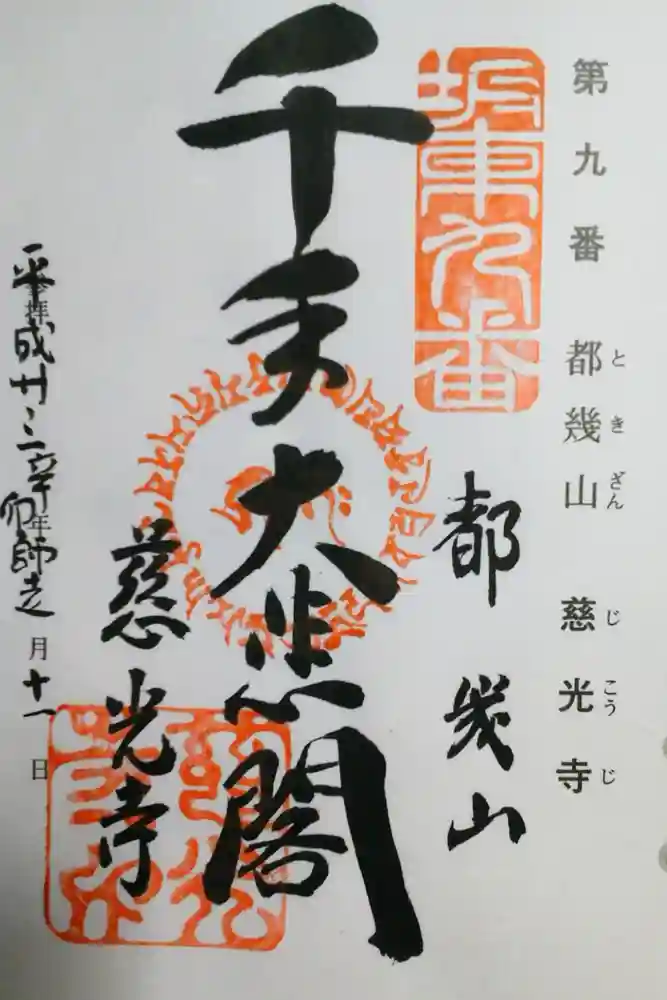 第九番 都幾山 慈光寺
と き ざん じ こう じ
坂東九番
都幾山
千手大悲閣
慈光寺
平成廿三辛卯年師走月十一日